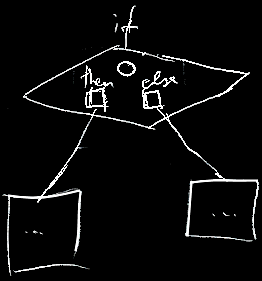 if
then else
... ...